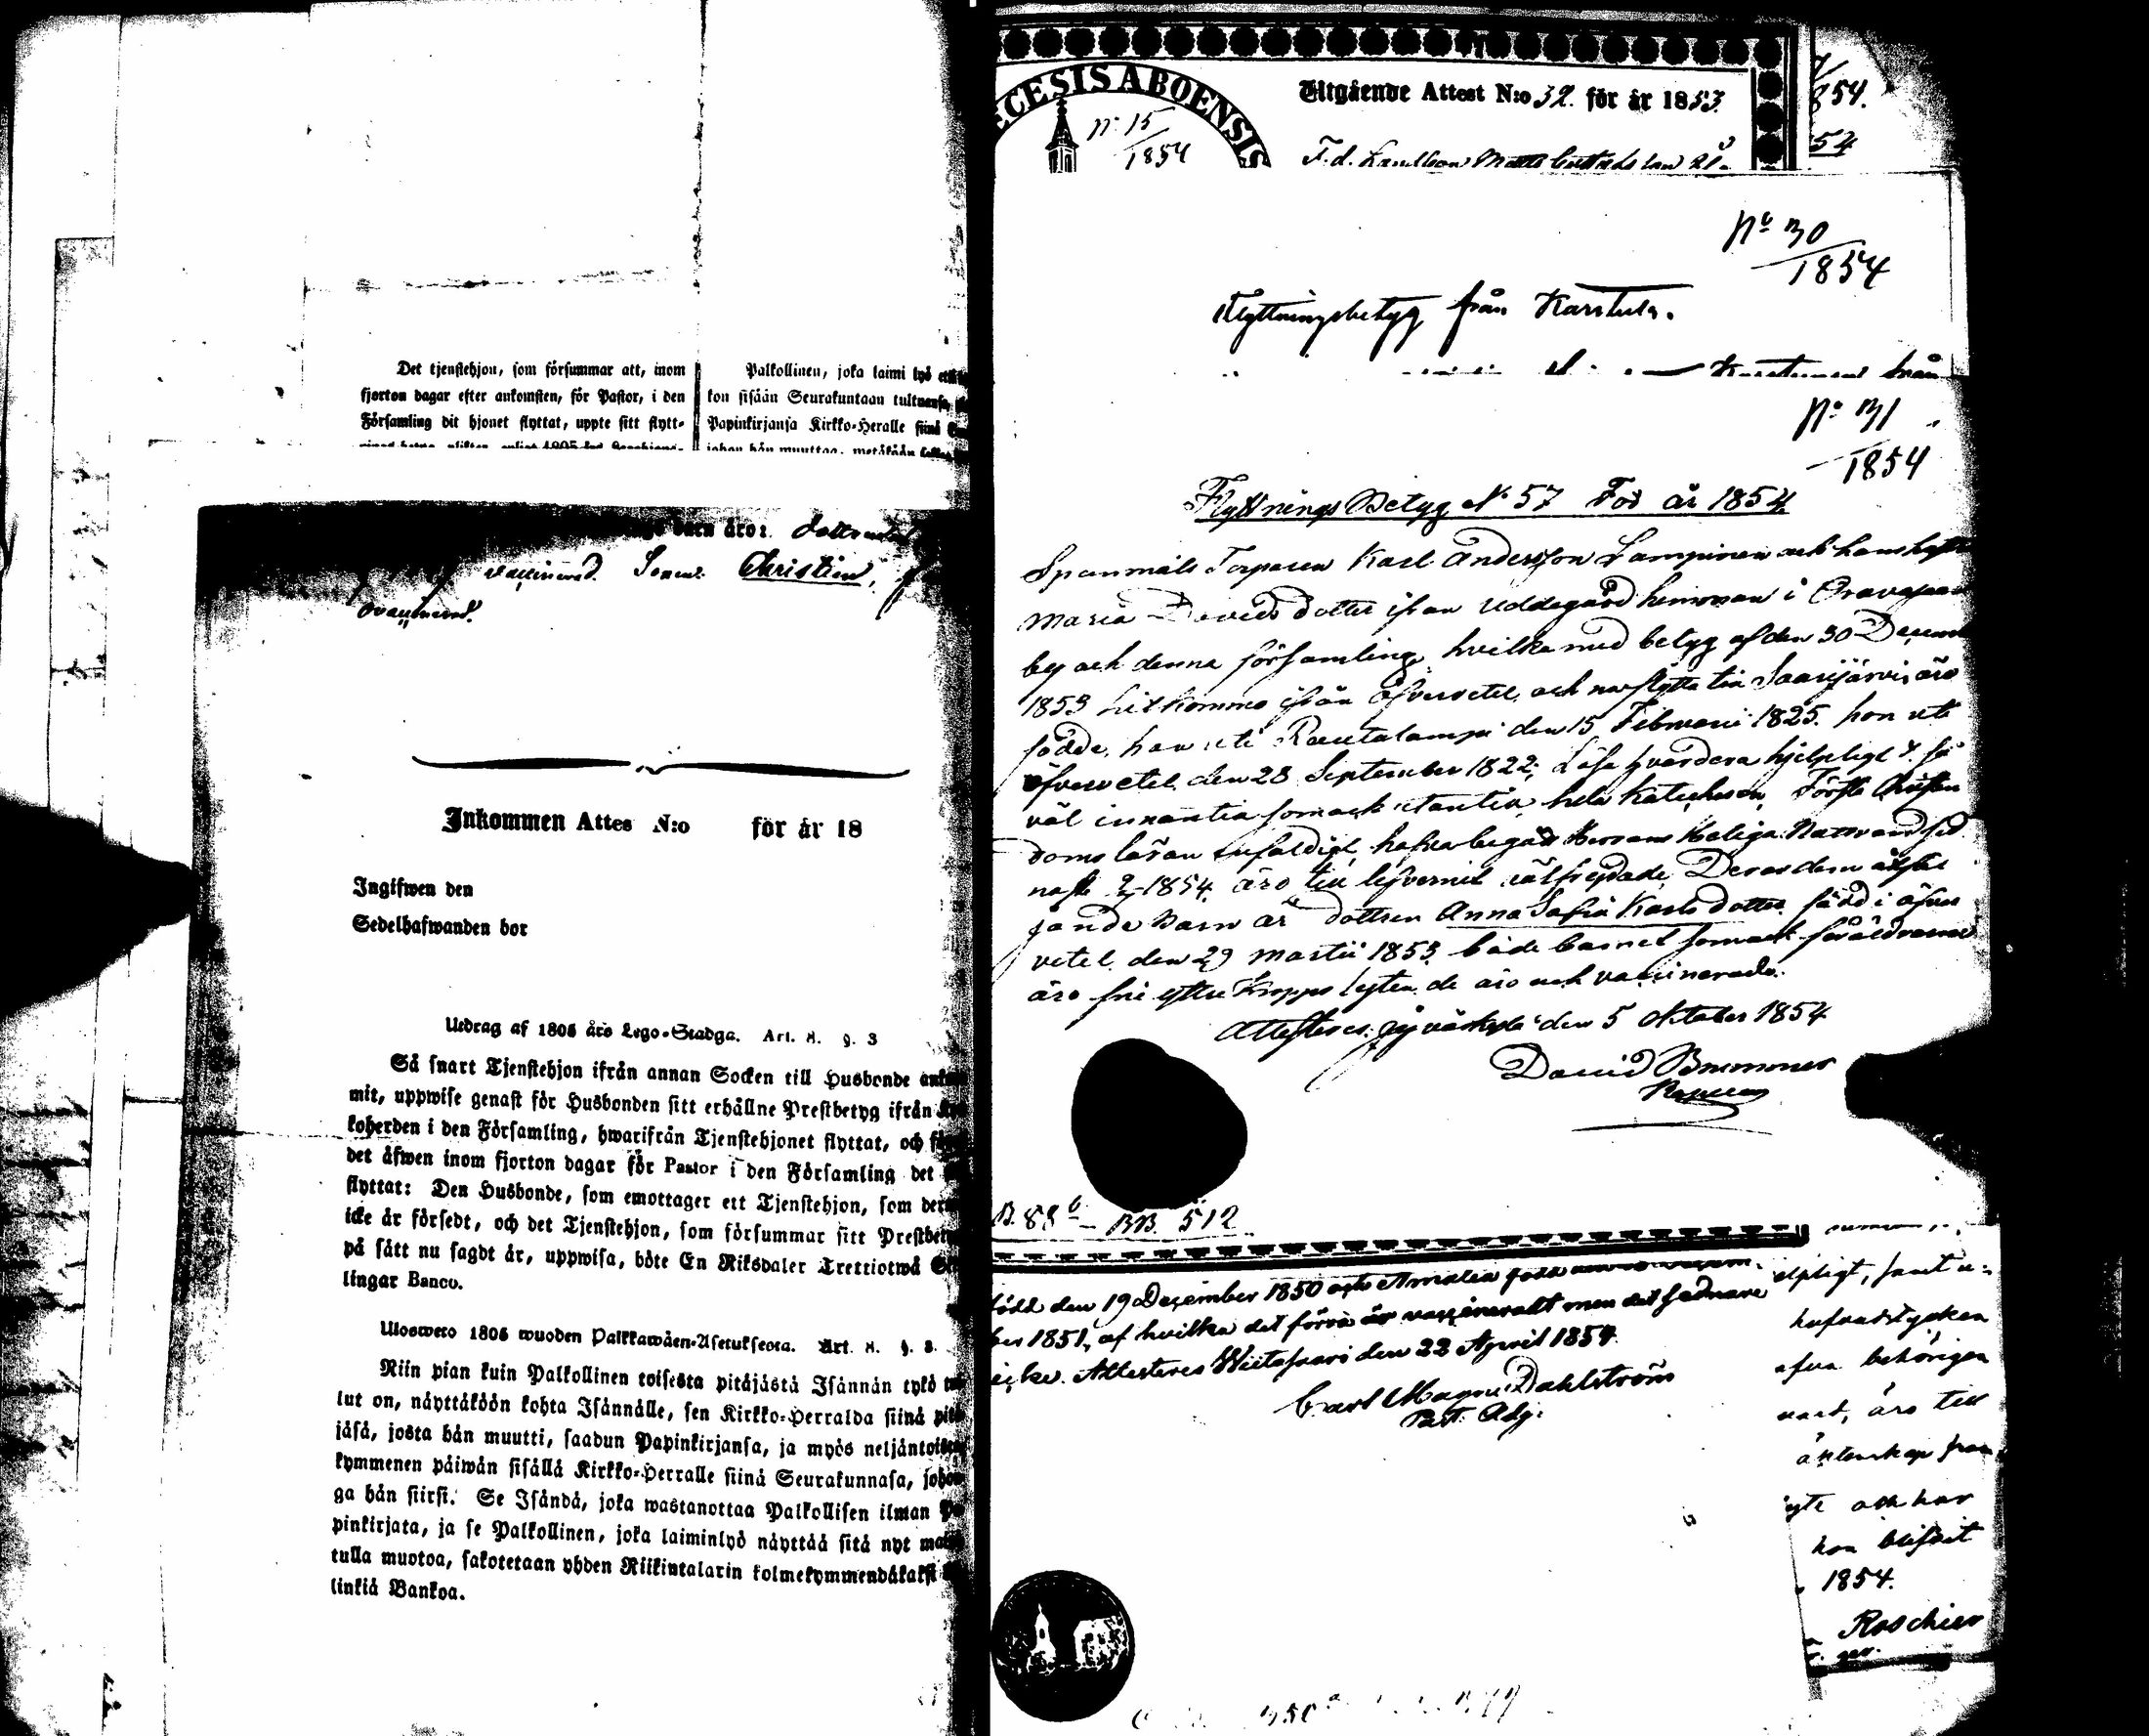 Det tjenstehjon, som försummar att, inom
fjorton dagar efter ankomsten, för Pastor, i den
Församling dit hjonet flyttat, uppte sitt flytt-
Palkollinen, joka laimi lyö
kon sisään Seurakuntaan
Papinkirjansa Kirkko-Heralle siinä
johon hän muuttaa, metäkään
barn äro: dottren
vaccinerad. Sonen Christian,
ovaccinerad.
Inkommen Attes N:o för år 18
Ingifwen den
Sedelhafwanden bor
Utdrag af 1805 års Lego-Stadga. Art. 8. §. 3
Så snart Tjenstehjon ifrån annan Socken till Husbonde
mit, uppwise genast för Husbonden sitt erhållne Prestbetyg ifrån
koherden i den Församling, hwarifrån Tjenstehjonet flyttat, och
det äfwen inom fjorton dagar för Pastor i den Församling det
flyttat: Den Husbonde, som emottager ett Tjenstehjon, som
icke är försedt, och det Tjenstehjon, som försummar sitt
på sätt nu sagdt är, uppwisa, böte En Riksdaler Trettiotwå
lingar Banco.
Ulosweto 1805 wuoden Palkkawäen-Asetuksesta. Art. 8. §. 3.
Niin pian kuin Palkollinen toisesta pitäjästä Isännän tykö
lut on, näyttäköön kohta Isännälle, sen Kirkko-Herralda siinä
jäsä, josta hän muutti, saadun Papinkirjansa, ja myös
kymmenen päiwän sisällä Kirkko-Herralle siinä Seurakunnasa,
ga hän siirsi. Se Isändä, joka wastanottaa Palkollisen ilman
pinkirjata, ja se Palkollinen, joka laiminlyö näyttää sitä nyt
tulla muotoa, sakotetaan yhden Riikintalarin kolmekymmendäkaksi
linkiä Bankoa.
ECESIS ABOENSIS
No 15
1854
Utgående Attest N:o 32. för år 1853.
F.d.
54.
54
No 30
1854
Flyttningsbetyg från Karstula.
från
No 31
1854
Flyttnings Betyg No 57 För år 1854
Spanmåls Torparen Karl Andersson Lampinen och hans hustru
Maria Davidsdotter ifrån Uddegård hemman i Oravasaari
by och denna församling, hvilka med betyg af den 30 Decemb
1853 hitkommo ifrån Öfvervetil och nu flytta till Saarijärvi, äro
födde, han uti Rautalampi den 15 Februarii 1825. hon uti
Öfvervetil den 28 September 1822; Läsa hvardera hjelpligt & så
väl innantill som ock utantill hela Katechesen, Förstå Christen
doms läran enfaldigt, hafva begått Herrans Heliga Nattvard sed
nast 2/7 1854. äro till lefvernet välfrejdade. Deras dem åtföl
jande Barn är dottren Anna Sofia Karlsdotter född i Öfver
vetel den 29 Martii 1853. både barnet som ock föräldrarne
äro frie yttre Kropps lyten, de äro och vaccinerade.
Attesteres: Jyväskylä den 5 Oktober 1854
David Brommer
B. 88 b - BB. 512
född den 19 December 1850 och Amalia född
ber 1851, af hvilka det förra är vaccineradt men det sednare
icke. Attesteres Wiitasaari den 22 April 1854.
Carl Magnus Dahlström
Past. Adj.
elpligt, samt u-
hufvudstycken
behörigen
vart, äro till
äktenskap från
och har
hon blifvit
1854.
Roschier